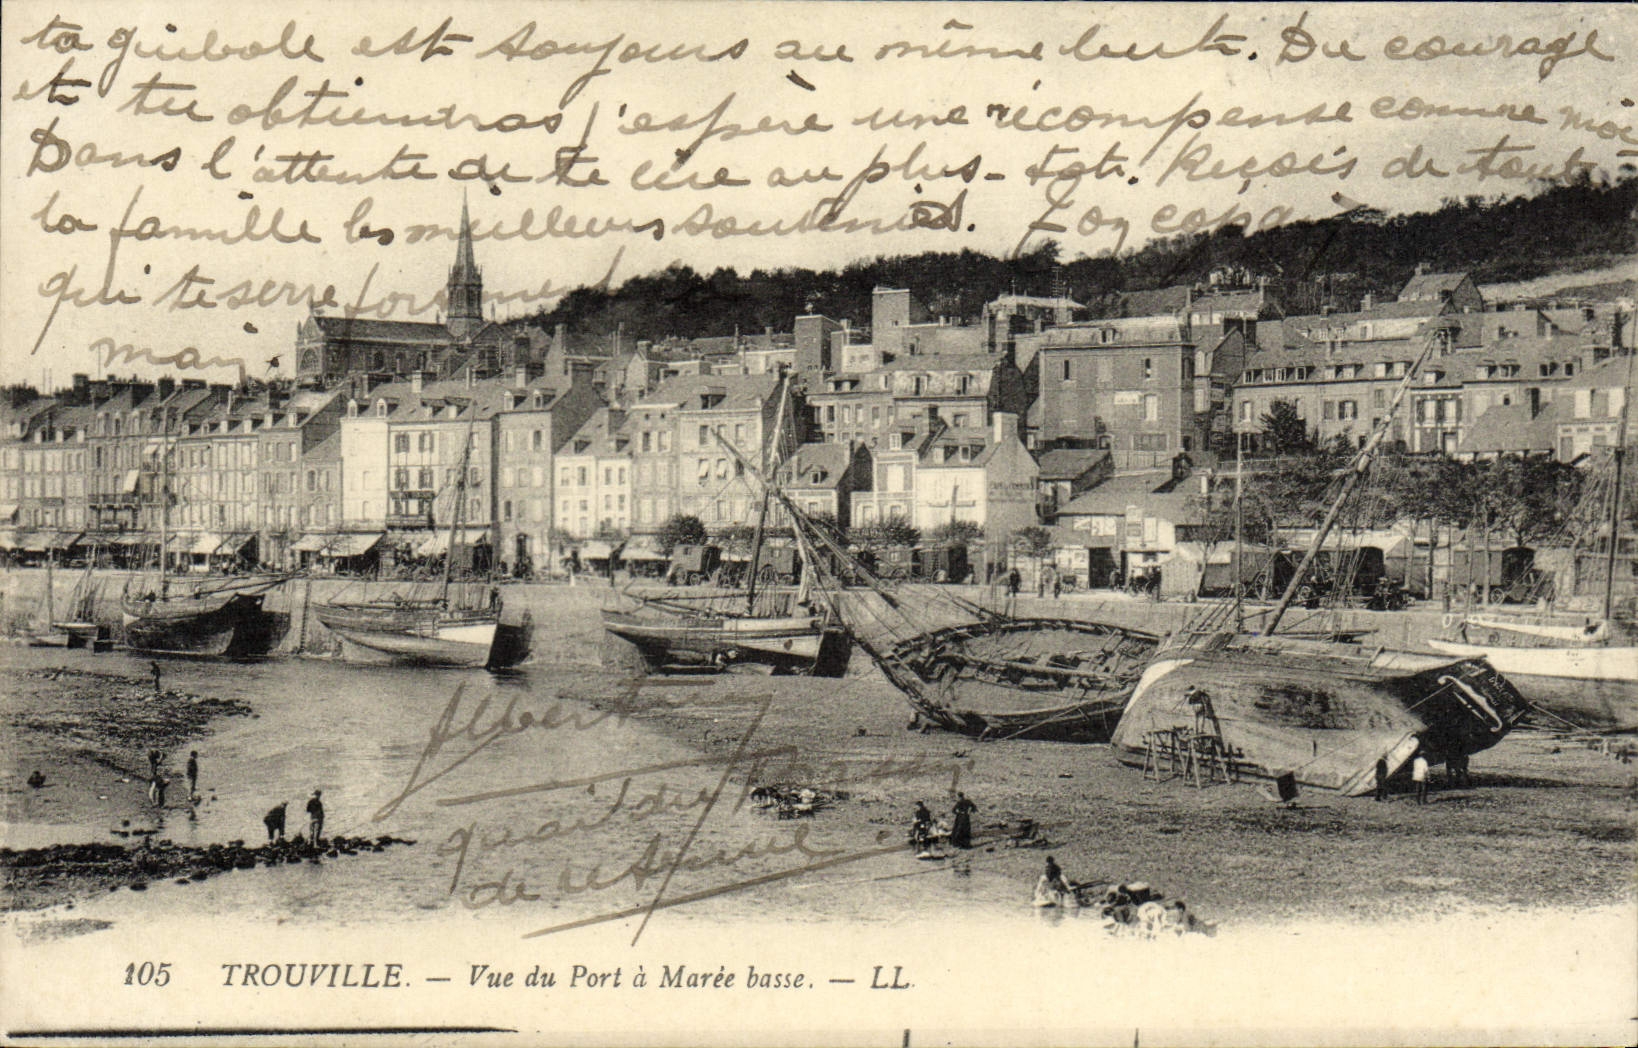 ta guibole est toujours au même but. Du courage
et tu obtiendras j'espère une récompense comme moi
Dans l'attente de te lire au plus-tot. Reçois de toute
la famille les meilleurs souvenirs. Ton copain
qui te serre forcement
main.
Albert
quai du
de
105 TROUVILLE. — Vue du Port à Marée basse. — LL.